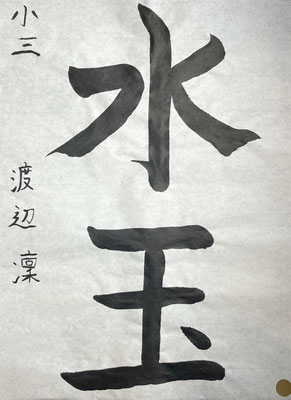 水玉
小三 渡辺凜